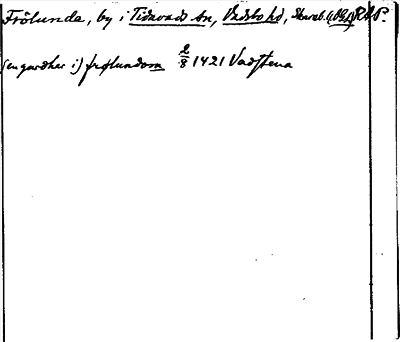 Frölunda, by i Tidavads sn, Vadsbo hd, Skarab. l. RAP.
(en gardhar i) frølundom 2/8 1421 Vadstena